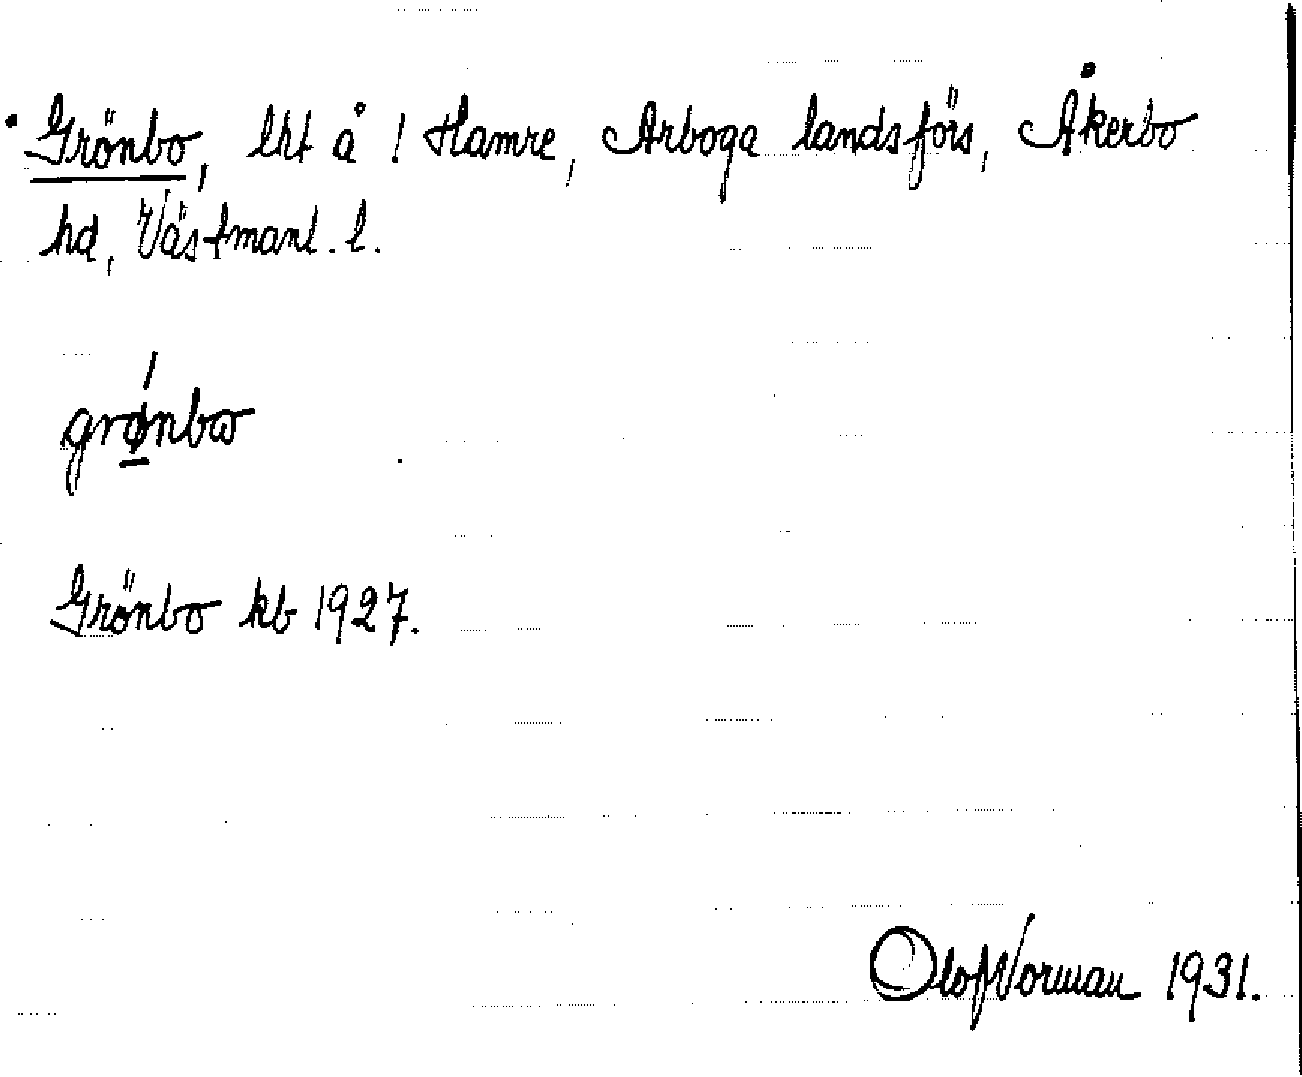 Grönbo, lht å ! Hamre, Arboga landsförs, Åkerbo
hd, Västmanl. l.
grǿ̲nbω
Grönbo kb 1927.
Olof Norman 1931.